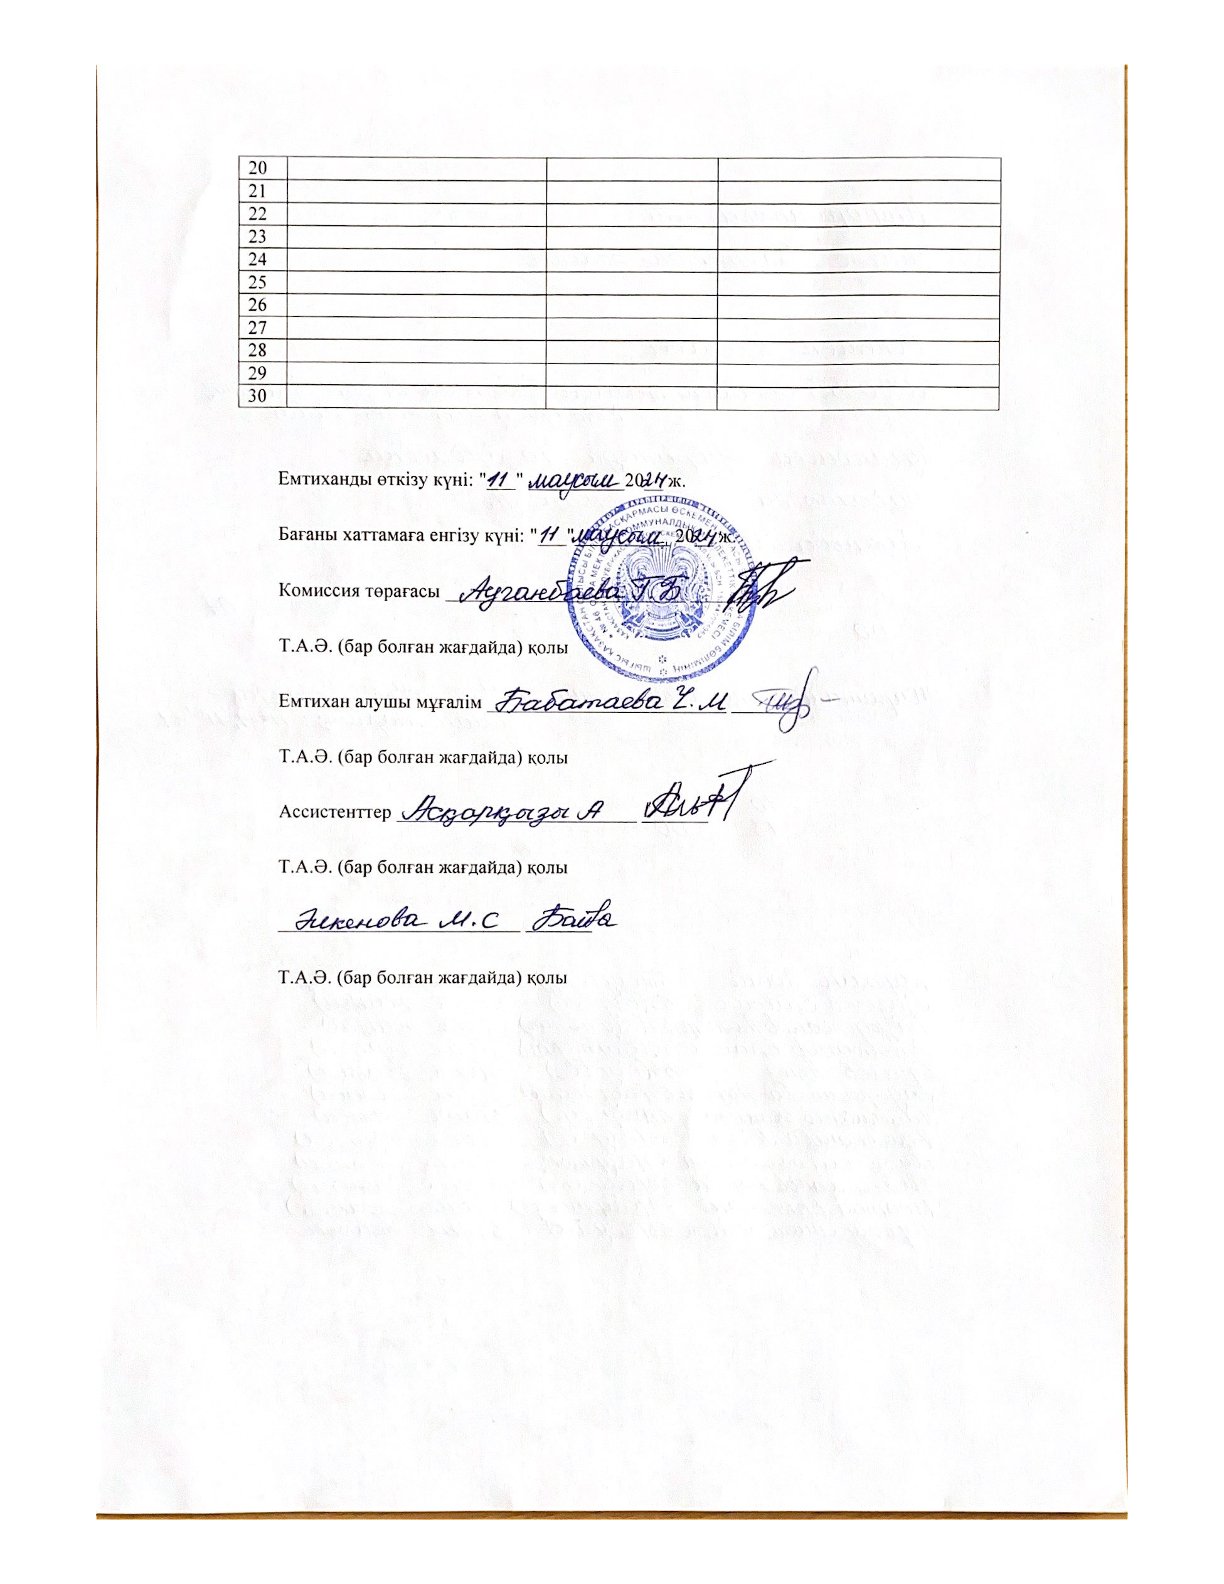 20
21
22
23
24
25
26
27
28
29
30
Емтиханды өткізу күні: "11" маусым 2024 ж.
Бағаны хаттамаға енгізу күні: "11" маусым 2024 ж.
Комиссия төрағасы Ауганбаева Г Б
Т.А.Ә. (бар болған жағдайда) қолы
Емтихан алушы мұғалім Бабатаева Ч.М
Т.А.Ә. (бар болған жағдайда) қолы
Ассистенттер Асқарқызы А
Т.А.Ә. (бар болған жағдайда) қолы
Әлкенова М.С
Т.А.Ә. (бар болған жағдайда) қолы